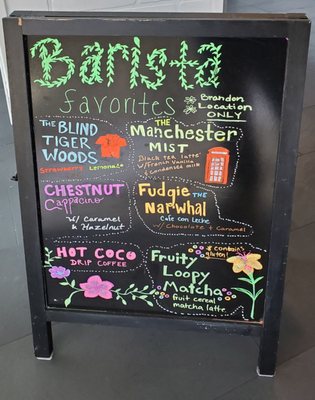 Barista
favorites
Brandon
Location
ONLY
The BLIND
TIGER
WOODS
Strawberry Lemonade
THE
Manchester
MIST
Black tea latte
w/French Vanilla
& Condensed milk
CHESTNUT
Cappacino
w/ Caramel
& Hazelnut
Fudgie THE
Narwhal
Cafe con Leche
w/ Chocolate + Caramel
HOT COCO
DRIP COFFEE
Fruity
Loopy
Matcha
fruit cereal
matcha latte
* contains
gluten!